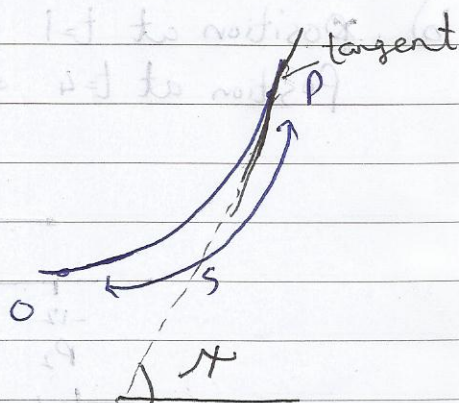 tangent
P
S
O
ψ